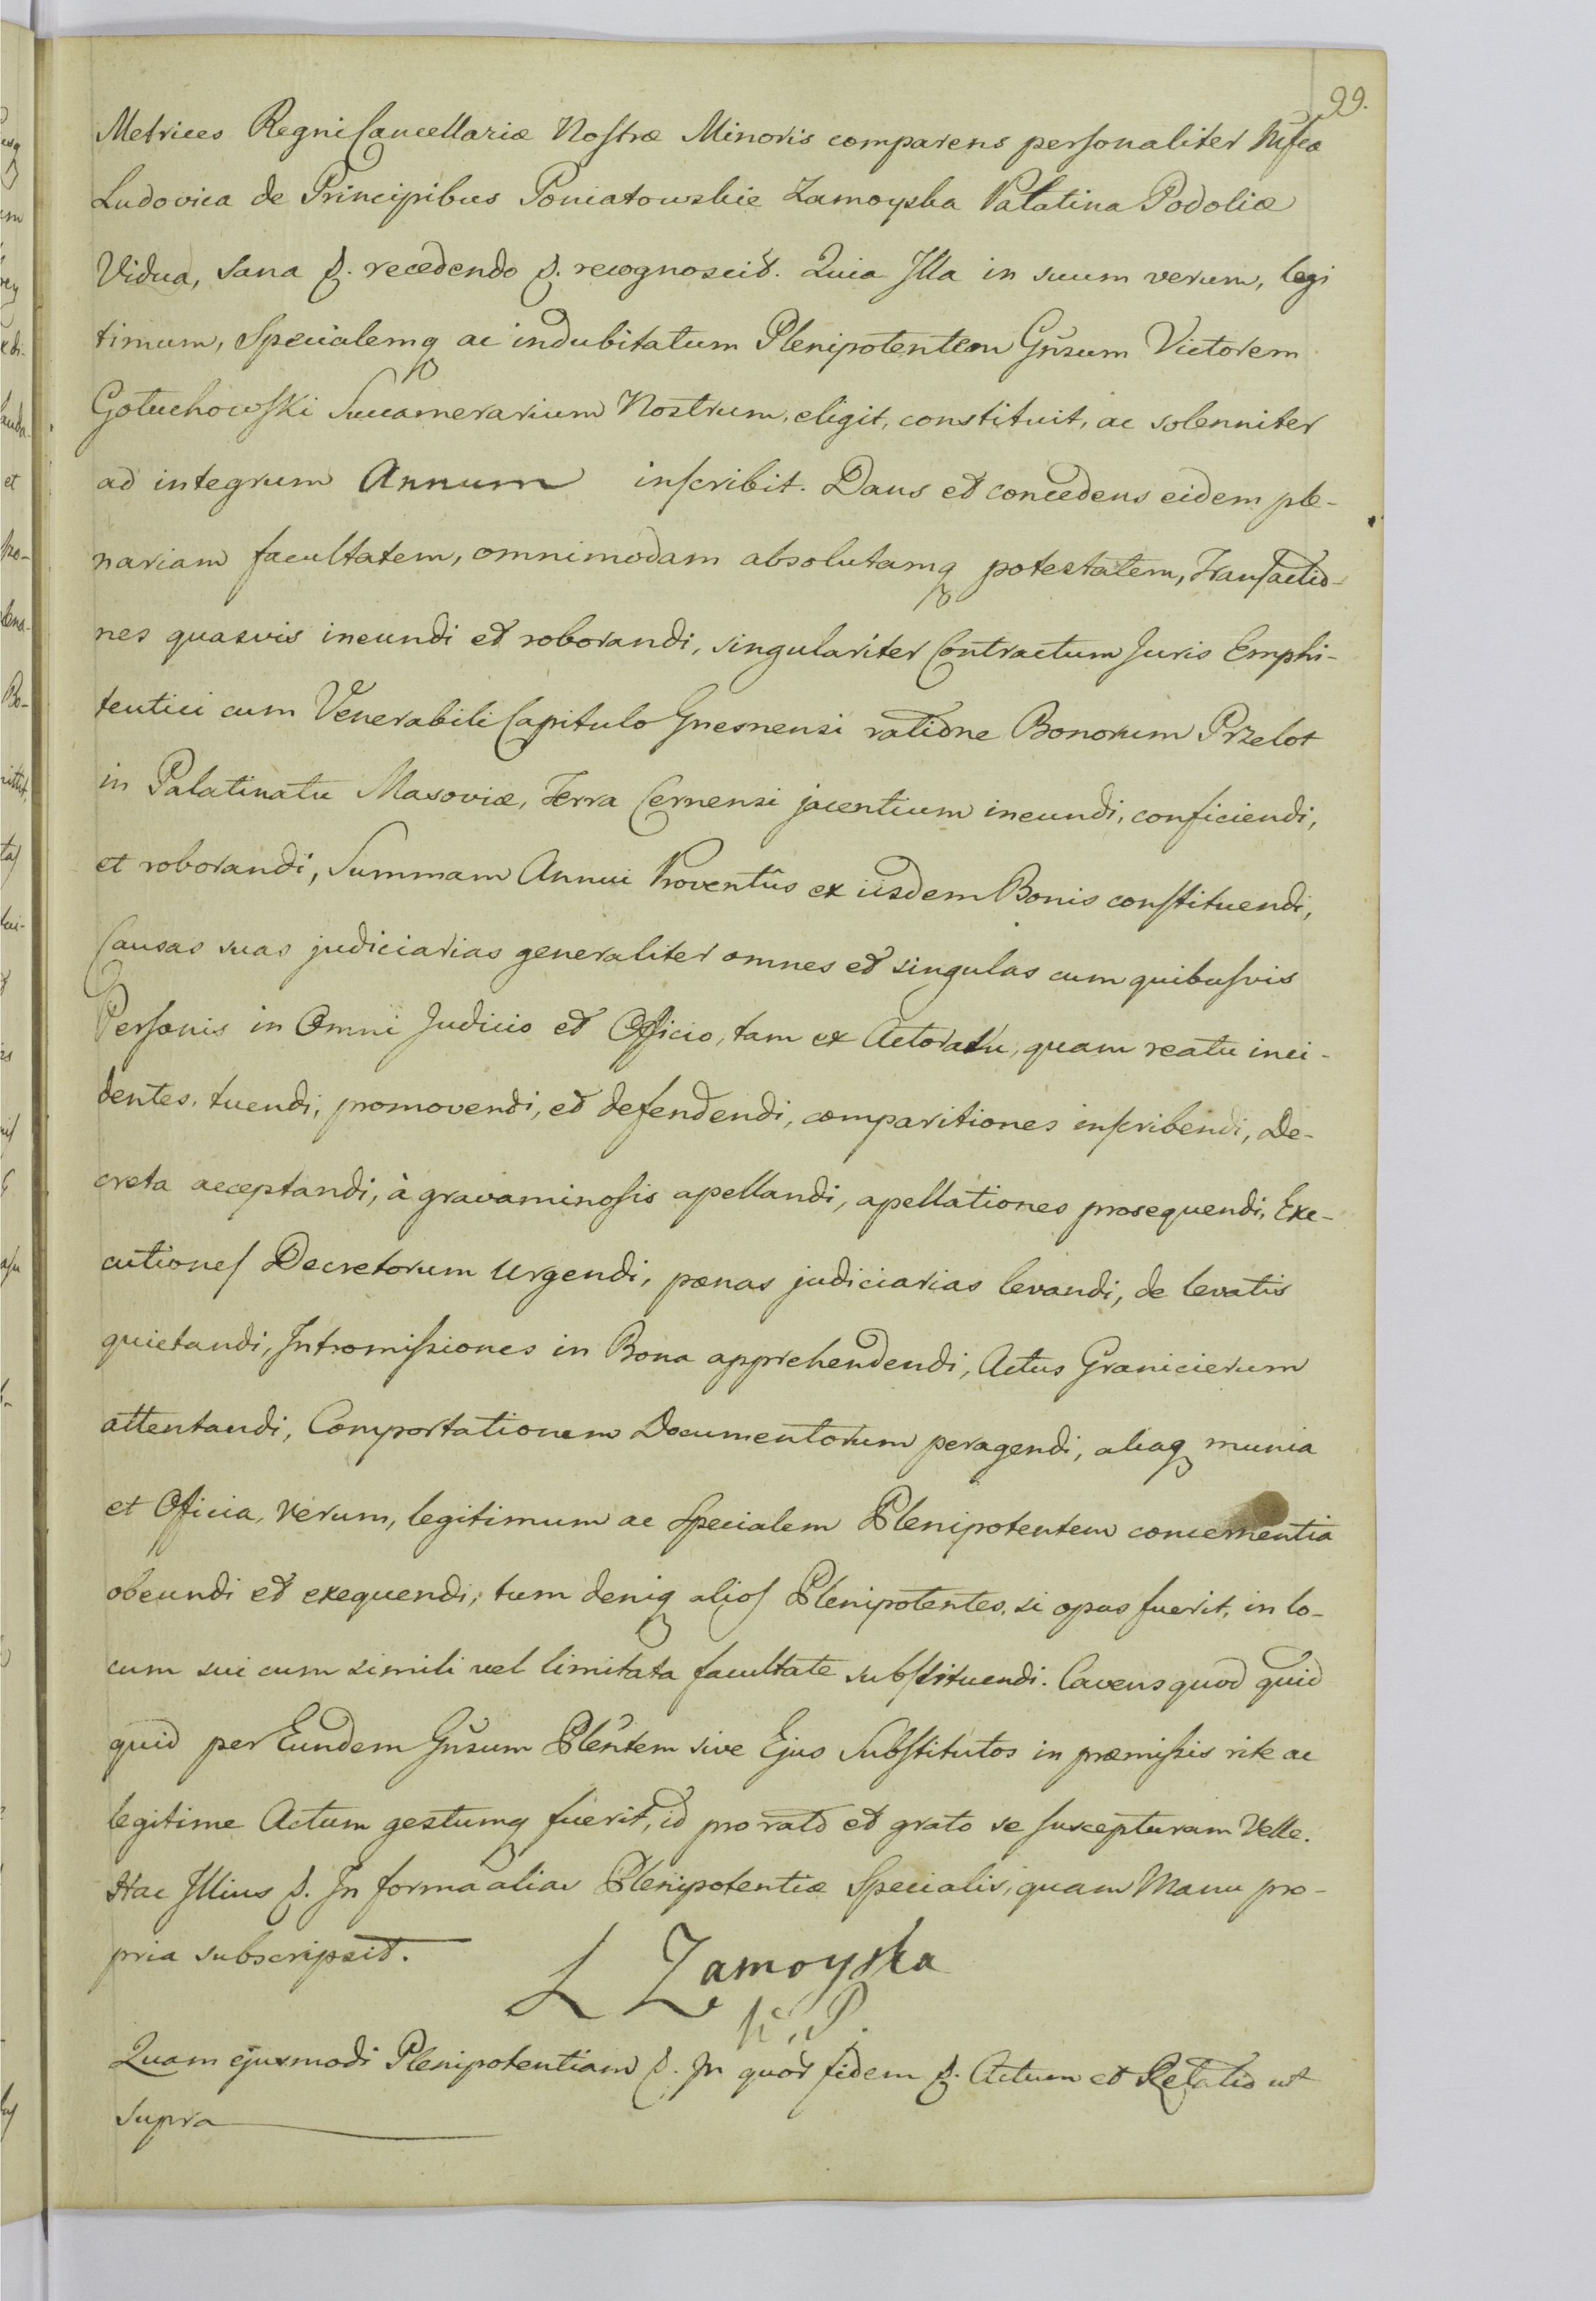 99.
Metrices Regni Cancellariæ Nostræ Minoris comparens personaliter
Ludovica de Principibus Poniatowskie Zamoyska Palatina Podoliæ
Vidua, sana &. recedendo &. recognoscit. Quia Illa in suum verum, legi
timum, Specialemq ac indubitatum Plenipotentem Gnsum Victorem
Gołuchowski Succamerarium Nostrum, eligit, constituit, ac solenniter
ad integrum Annum inscribit. Dans et concedens eidem ple-
nariam facultatem, omnimodam absolutamq potestatem, Transactio-
nes quasvis ineundi et roborandi, singulariter Contractum Juris Emphi-
teutici cum Venerabili Capitulo Gnesnensi ratione Bonorum Przelot
in Palatinatu Masoviæ, Terra Cernensi jacentium ineundi, conficiendi,
et roborandi, Summam Annui Proventûs ex iisdem Bonis constituendi,
Causas suas judiciarias generaliter omnes et singulas cum quibusvis
Personis in Omni Judicio et Officio, tam ex Actoratu, quam reatu inci-
dentes, tuendi, promovendi, et defendendi, comparitiones inscribendi, De-
creta acceptandi, à gravaminosis apellandi, apellationes prosequendi, Exe-
cutiones Decretorum Urgendi, pœnas judiciarias levandi, de levatis
quietandi, Intromissiones in Bona apprehendendi, Actus Granicierum
attentandi, Comportationem Documentorum peragendi, aliaq munia
et Officia, verum, legitimum ac Specialem Plenipotentem concernentia
obeundi et exequendi; tum deniq alios Plenipotentes, si opus fuerit, in lo-
cum sui cum simili vel limitata facultate substituendi. Cavens quod quid
quid per Eundem Gnsum Plentem sive Ejus Substitutos in præmissis rite ac
legitime Actum gestumq fuerit, id pro rato et grato se suscepturam Velle.
Hac Illius &. In forma aliar Plenipotentiæ Specialis, quam Manu pro-
pria subscripsit.
L Zamoyska
Quam ejusmodi Plenipotentiam &. In quor fidem &. Actum et Relatio ut
supra